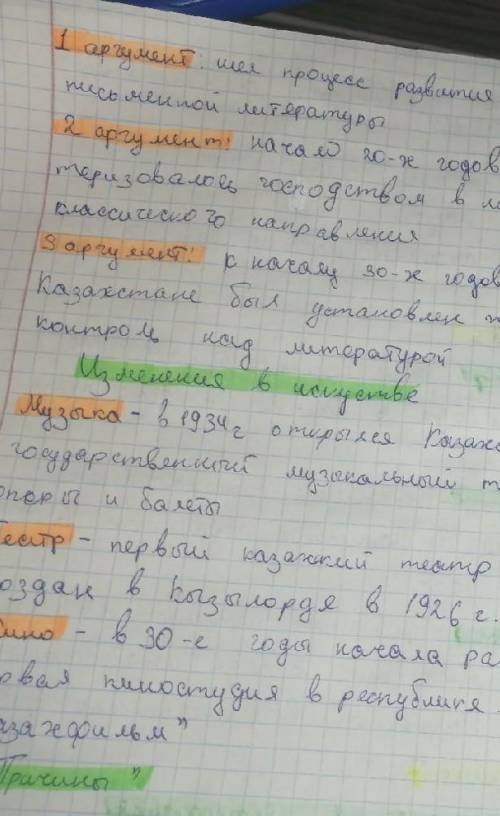 1 аргумент: шел процесс развития
письменной литературы
2 аргумент: начало 20-х годов
теризовалось господством в
классического направления
3 аргумент: к началу 30-х годов
Казахстане был установлен
контроль над литературой
Изменения в искустве
Музыка - в 1934 г открылся Казах
государственный музыкальный т
оперы и балеты
Театр - первый казахкий театр
оздан в Кызылорде в 1926 г.
Кино - в 30-е годы начала ра
рвая киностудия в республике
азахфильм"
Причины"